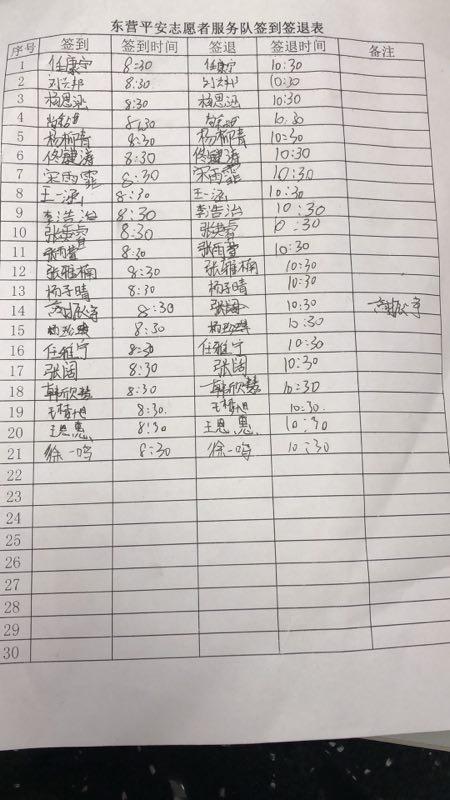 东营平安志愿者服务队签到签退表
序号 签到 签到时间 签退 签退时间 备注
1 任康宁 8:30 任康宁 10:30
2 刘兴邦 8:30 刘兴邦 10:30
3 杨思涵 8:30 杨思涵 10:30
4 8:30 10:30
5 杨柳青 8:30 杨柳青 10:30
6 佟健涛 8:30 佟健涛 10:30
7 宋雨霏 8:30 宋雨霏 10:30
8 王一涵 8:30 王一涵 10:30
9 李浩治 8:30 李浩治 10:30
10 8:30 10:30
11 张雨萱 8:30 张雨萱 10:30
12 张雅楠 8:30 张雅楠 10:30
13 杨子晴 8:30 杨子晴 10:30
14 8:30 张阔 10:30
15 8:30 10:30
16 任雅宁 8:30 任雅宁 10:30
17 张阔 8:30 张阔 10:30
18 韩欣慧 8:30 韩欣慧 10:30
19 8:30 10:30
20 王恩惠 8:30 王恩惠 10:30
21 徐一鸣 8:30 徐一鸣 10:30
22
23
24
25
26
27
28
29
30